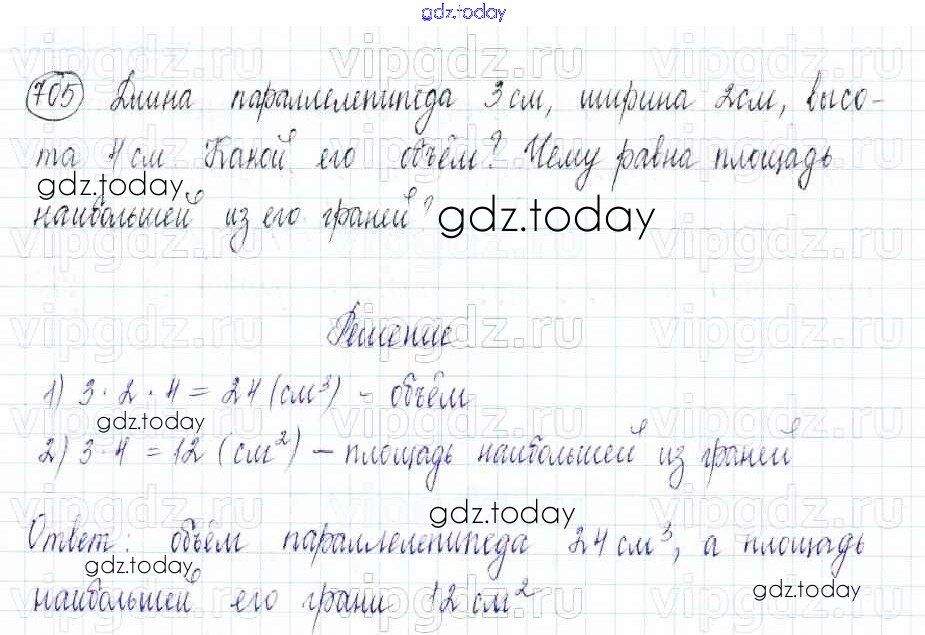 gdz.today
705 Длина параллелепипеда 3 см, ширина 2 см, высо-
та 4 см. Какой его объём? Чему равна площадь
gdz.today
наибольшей из его граней?
gdz.today
vipgdz.ru vipgdz.ru vipgdz.ru
Решение
1) 3 · 2 · 4 = 24 (см³) - объём
gdz.today
2) 3 · 4 = 12 (см²) - площадь наибольшей из граней
gdz.today
Ответ: объём параллелепипеда 24 см³, а площадь
gdz.today
наибольшей его грани 12 см²
gdz.today